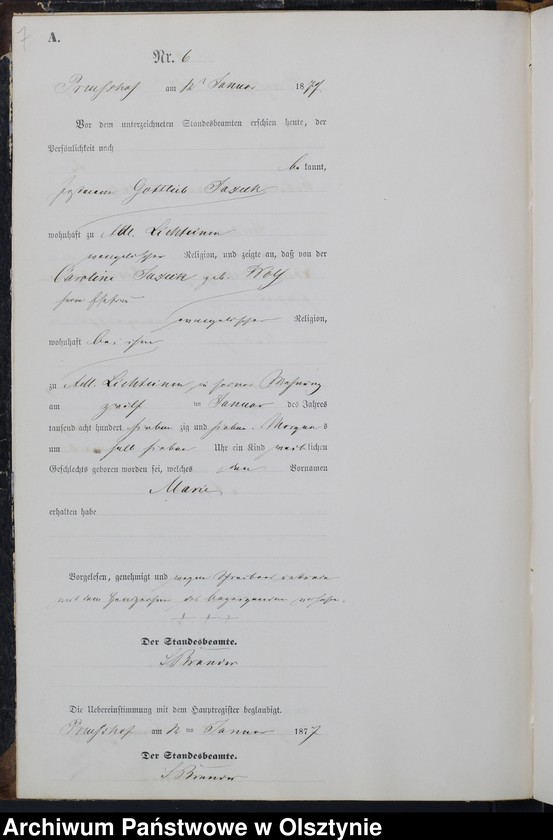 7
A.
Nr. 6
am 12 Januar 1877
Vor dem unterzeichneten Standesbeamten erschien heute, der
Persönlichkeit nach
be kannt,
Gottlieb
wohnhaft zu Adl. Lichteinen
evangelischer Religion, und zeigte an, daß von der
Caroline geb. Wolf
seiner Ehefrau
evangelischer Religion,
wohnhaft bei ihm
zu Adl. Lichteinen in seiner Wohnung
am zwölf ten Januar des Jahres
tausend acht hundert sieben zig und sieben Morgens
um halb sieben Uhr ein Kind weiblichen
Geschlechts geboren worden sei, welches den Vornamen
Marie
erhalten habe
Vorgelesen, genehmigt und wegen
mit dem Handzeichen des versehen.
+ + +
Der Standesbeamte.
Die Uebereinstimmung mit dem Hauptregister beglaubigt.
am 12 ten Januar 1877
Der Standesbeamte.
Archiwum Państwowe w Olsztynie